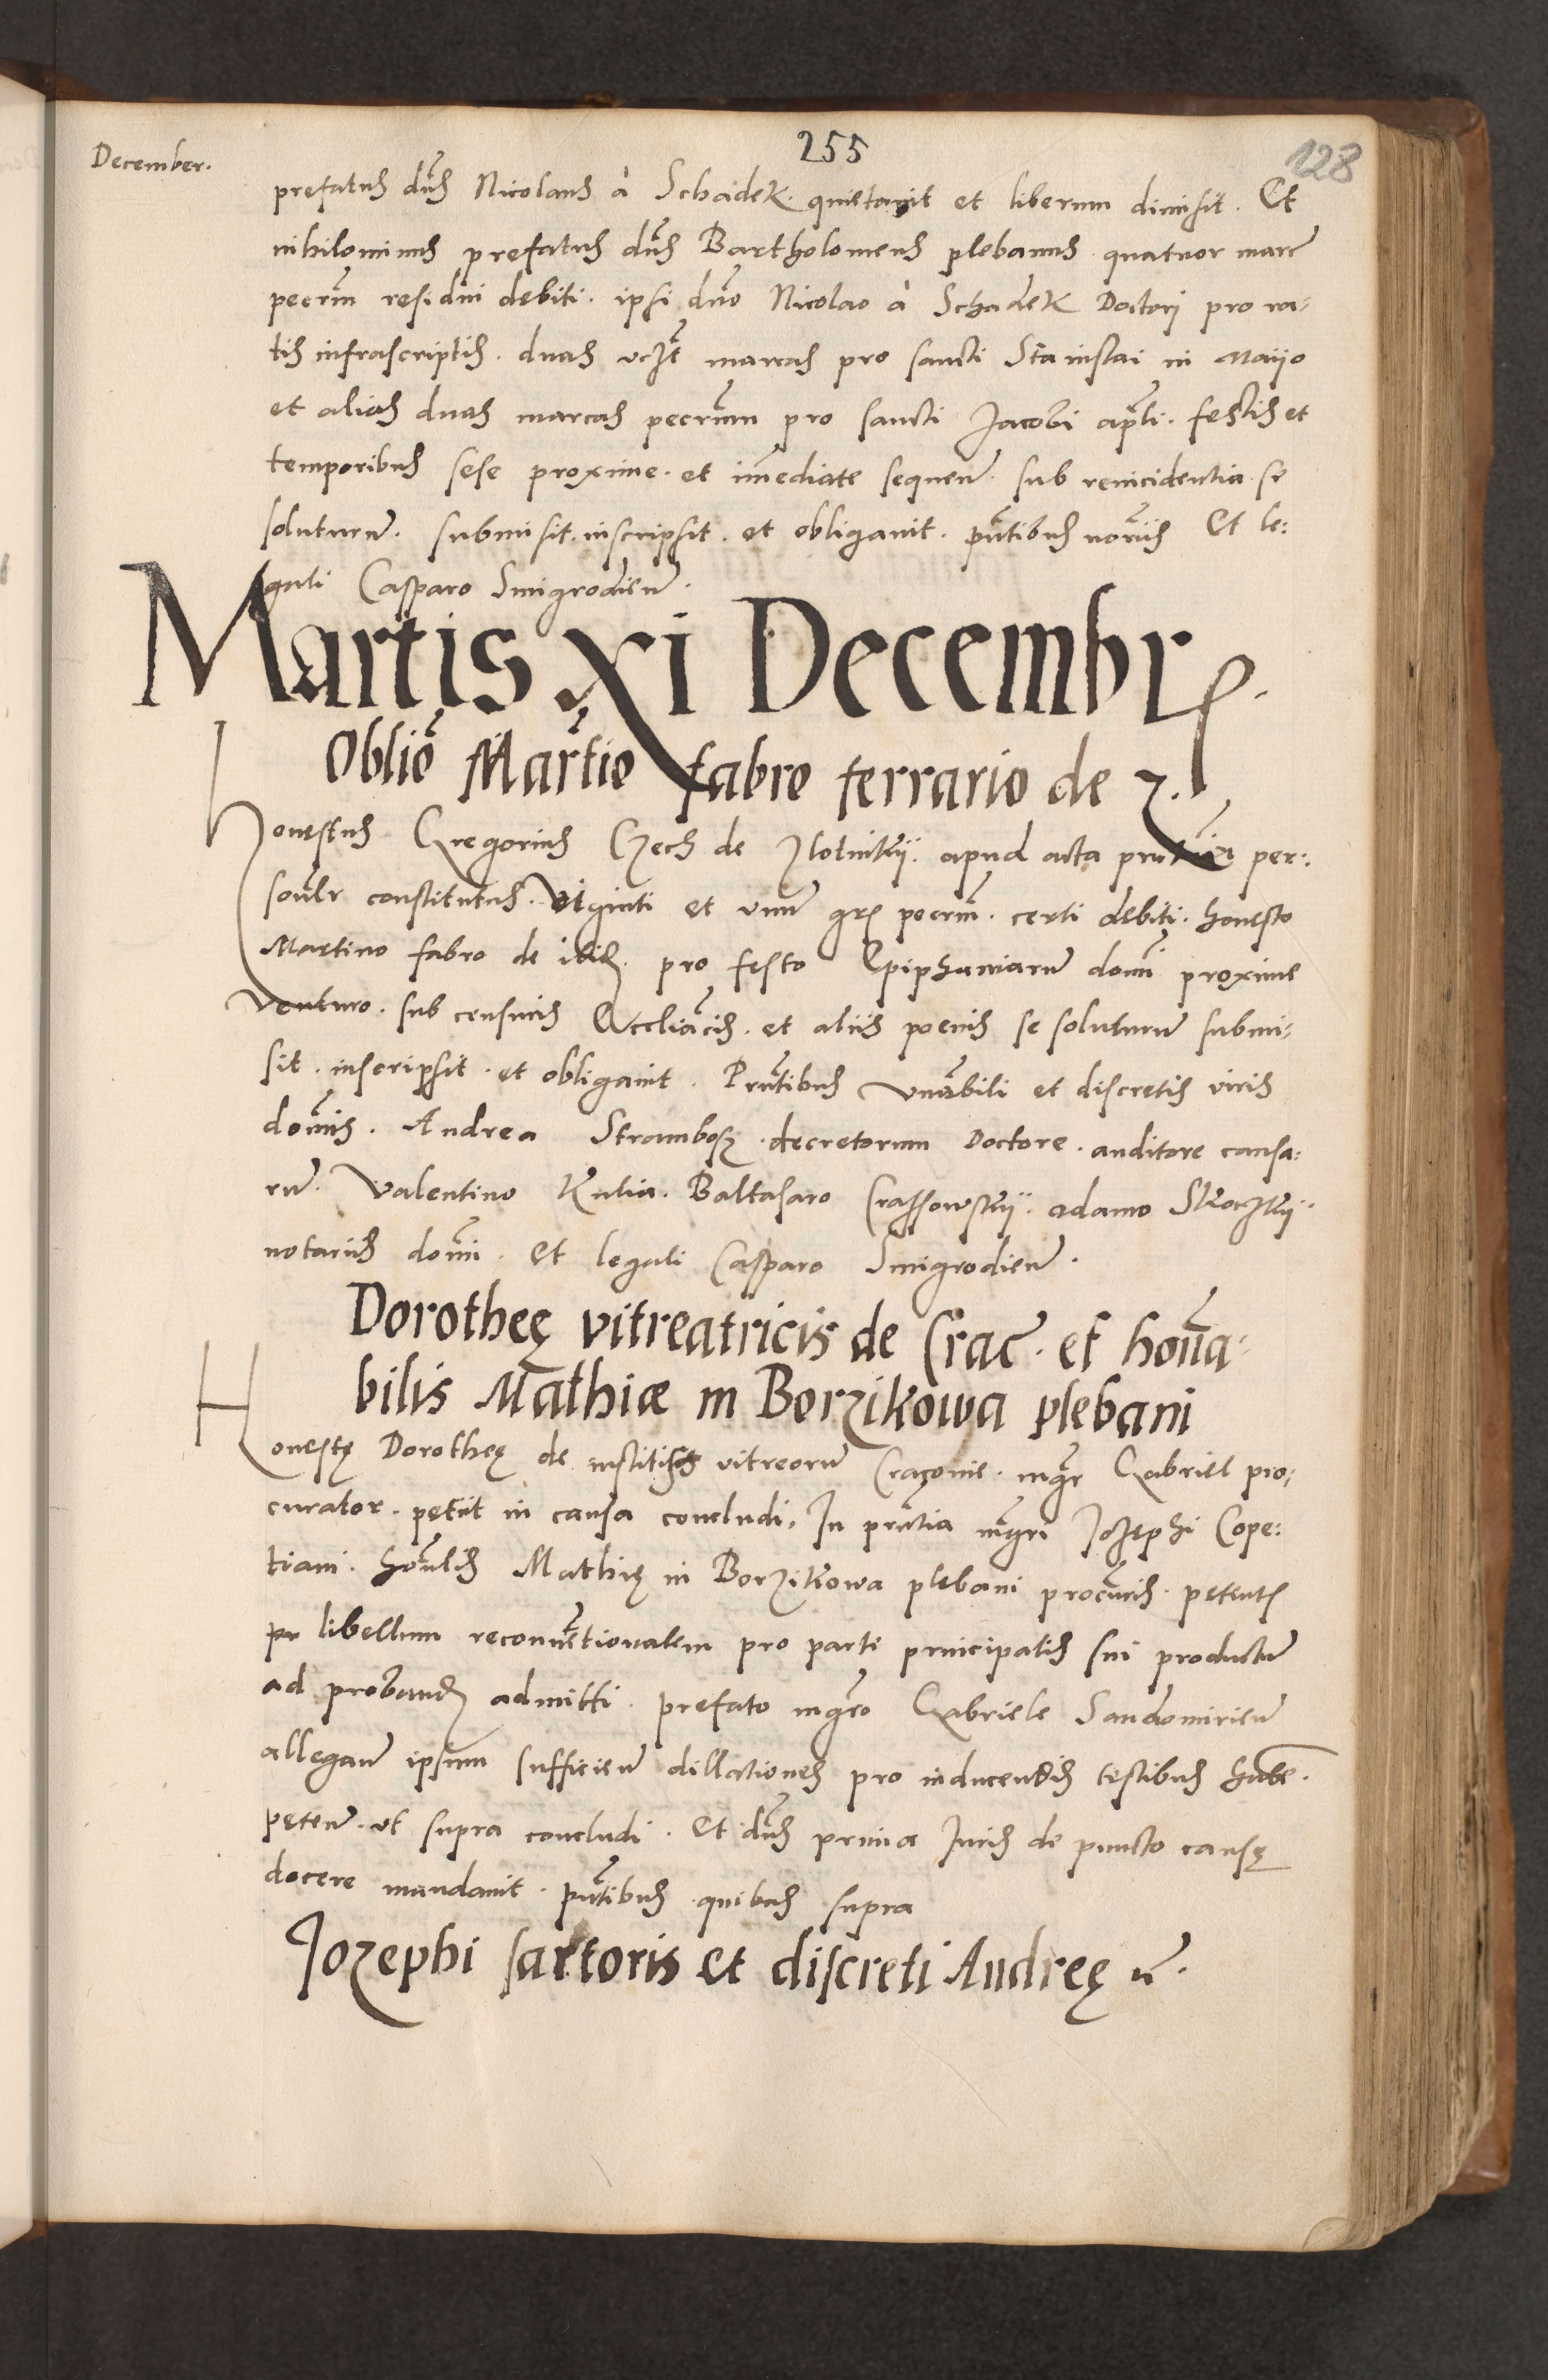 December.
255
128
prefatus dns̃ Nicolaus à Schadek. quietavit et liberum dimisit. Et
nihilominus prefatus dns̃ Bartholomeus plebanus quatuor marc̃
pecrm̃ residui debiti. ipsi dño Nicolao à Schadek Doctori pro ra-
tis infrascriptis. duas vczt̃ marcas pro sancti Stanislai in Maijo
et alias duas marcas pecrm̃ pro sancti Jacobi apl̃i. festis et
temporibus sese proxime. et im̃ediate sequeñ. sub reincidentia se
soluturũ. submisit. inscripsit. et obligavit. pñtibus notr̃iis Et le:
gali Casparo Smigrodień.
Martis xi Decembr.
Oblĩo Martĩo fabro ferrario de z.
Honestus Gregorius Czech de Zlotnikij. apud acta prñtia per:
sonalr̃ constitutus. Viginti et unũ grs pecrm̃. certi debiti. honesto
Martino fabro de ibid. pro festo Epiphaniarũ domĩ proxime
venturo. sub censuris Eccliãcis. et aliis poenis se soluturũ submi-
sit. inscripsit. et obligavit. Prñtibus Venr̃abili et discretis viris
domĩs. Andrea Strambosz. decretorum Doctore. auditore causa:
rũ. Valentino Kulia. Baltasaro Crassowskij. adamo Skoczkij.
notariis domĩ. Et legali Casparo Smigrodień.
Dorotheę vitreatricis de Crac̃. et honr̃a-
bilis Mathiæ in Borzikowa plebani
Honestę Dorotheę de institis vitreorũ Cracovie. mgr̃ Gabriel pro-
curator. petiit in causa concludi. In prñtia mgr̃i Jozephi Cope:
tiani. honr̃lis Mathię in Borzikowa plebani procur̃is. petentis
pr libellum reconventionalem pro parte principalis sui productũ
ad proband admitti. prefato mgr̃o Gabriele Sandomirień
allegañ ipsum sufficień dillationes pro inducendis testibus habe.
peteñ. ut supra concludi. Et dns̃ prima Juris de puncto causę
docere mandavit. pñtibus quibus supra
Jozephi sartoris et discreti Andreę ñ.